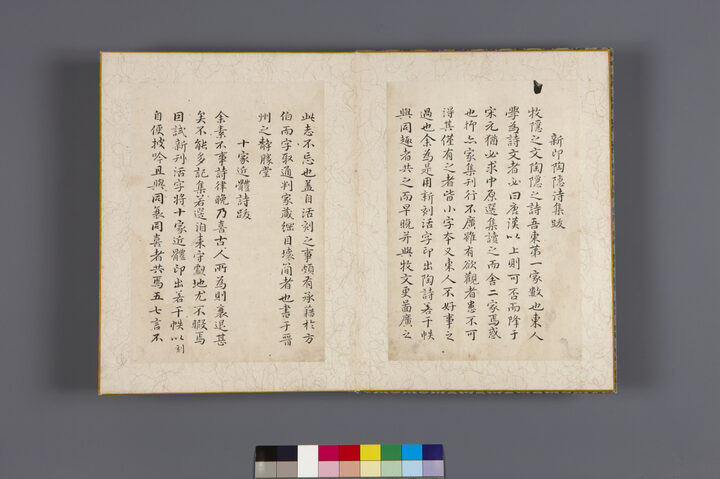 新印陶隱詩集跋
牧隱之文陶隱之詩吾東第一家數也東人
學為詩文者必曰唐漢以上則可否而降于
宋元猶必求中原選集讀之而舍二家焉惑
也抑二家集刊行不廣雖有欲觀者患不可
得其僅有之者皆小字本又東人不好事之
過也余為是用新刻活字印出陶詩若干帙
與同趣者共之而早晚并與牧文更啚廣之
此志不忘也蓋自活刻之事頗有承藉於方
伯而字取通判家藏細目壞簡者也書于晉
州之靜勝堂
十家近體詩跋
余素不事詩律晚乃喜古人所為則衰退甚
矣不能多記集若選洎來守觀地尤不暇焉
因試新刊活字將十家近體印出若干帙以刻
自便披吟且與同氣同喜者共焉五七言不